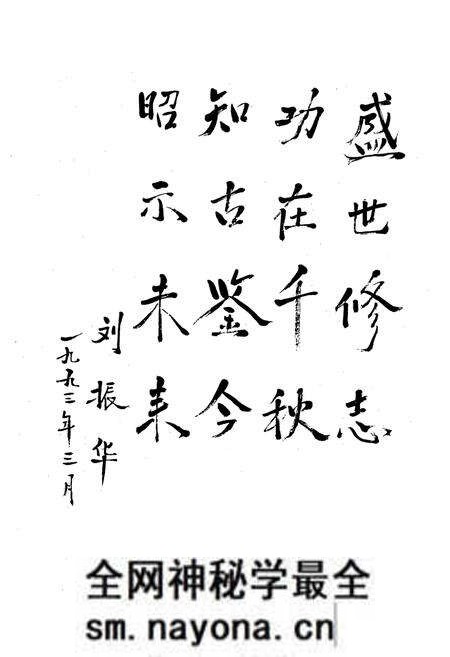 盛世修志
功在千秋
知古鉴今
昭示未来
刘振华
一九九三年三月
全网神秘学最全
sm.nayona.cn